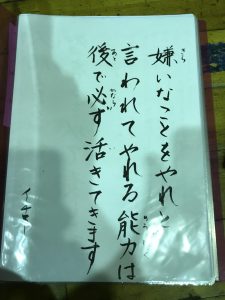 嫌いなことをやれと
言われてやれる能力は
後で必ず活きてきます
イチロー